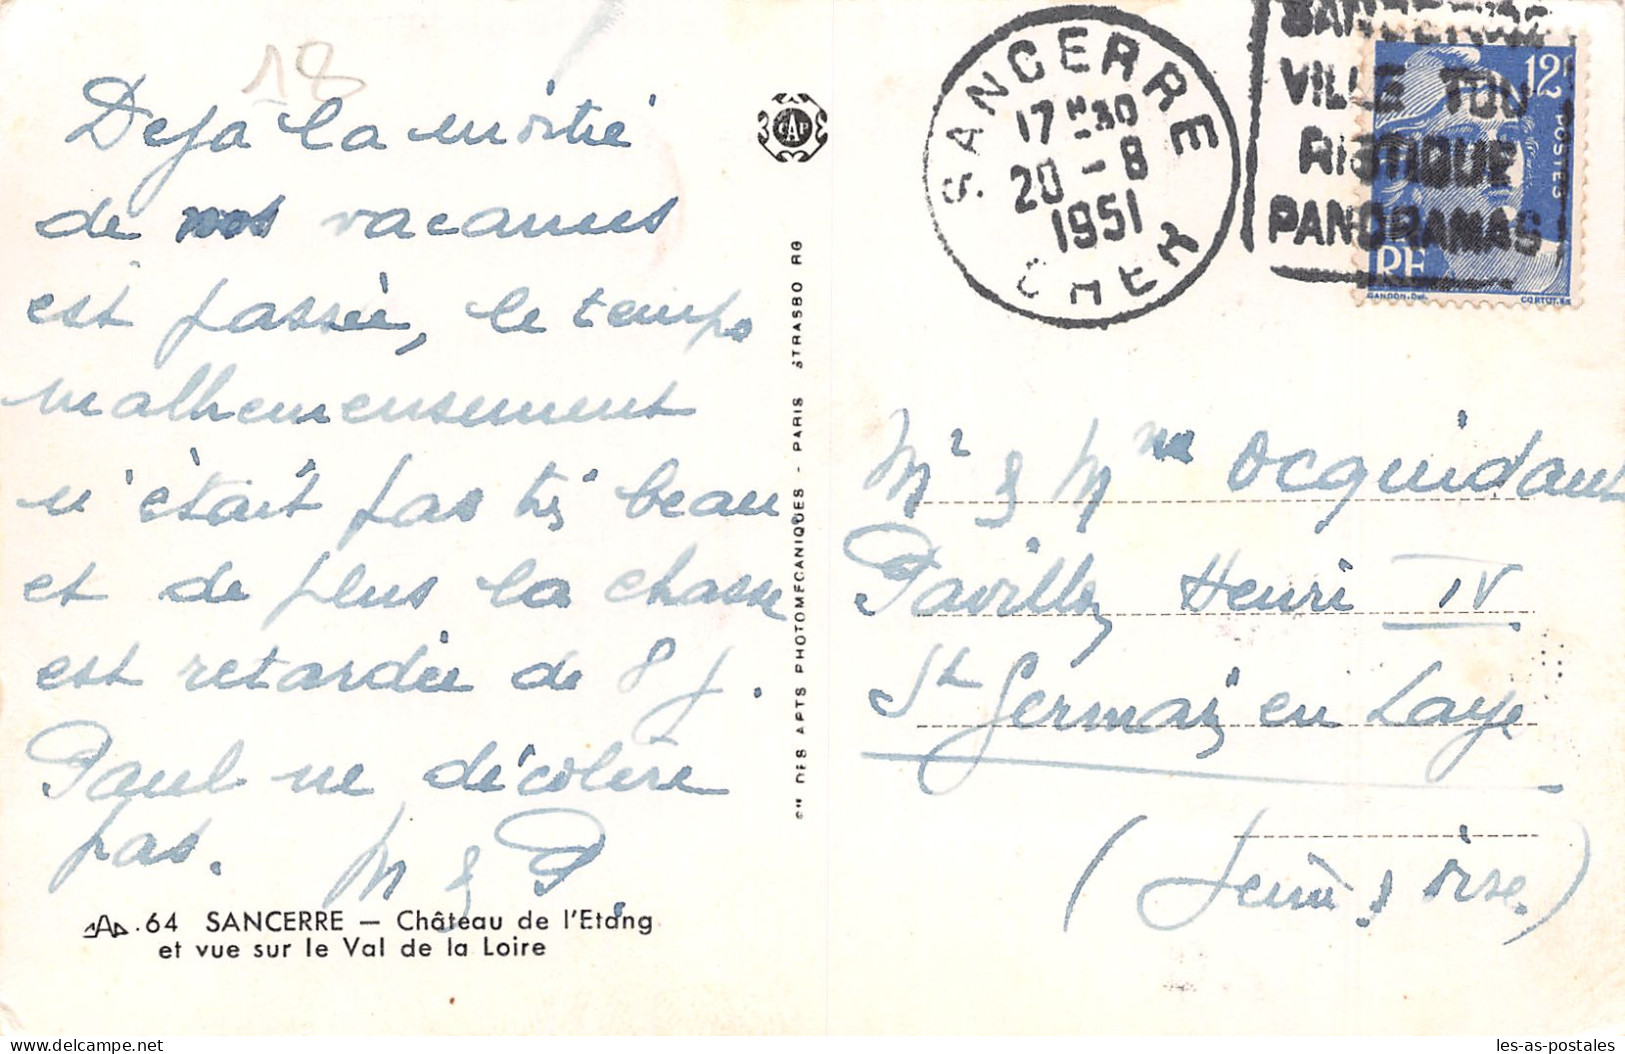 18
Dejà la moitié
de nos vacances
est passée, le temps
malheureusement
n'était pas très beau
et de plus la chasse
est retardée de 8 j.
Paul ne décolère
pas. M & P.
64 SANCERRE — Château de l'Etang
et vue sur le Val de la Loire
CAP
CIE DES ARTS PHOTOMECANIQUES - PARIS STRASBO RG
SANCERRE
17 H 30
20 - 8
1951
CHER
SANCERRE
VILLE TOU
RISTIQUE
PANORAMAS
12F
POSTES
RF
GANDON.Del.
CORTOT.Sc
Mr & Mme Ocquidant
Pavillon Henri IV
St Germain en Laye
(Seine & Oise)
les-as-postales.com